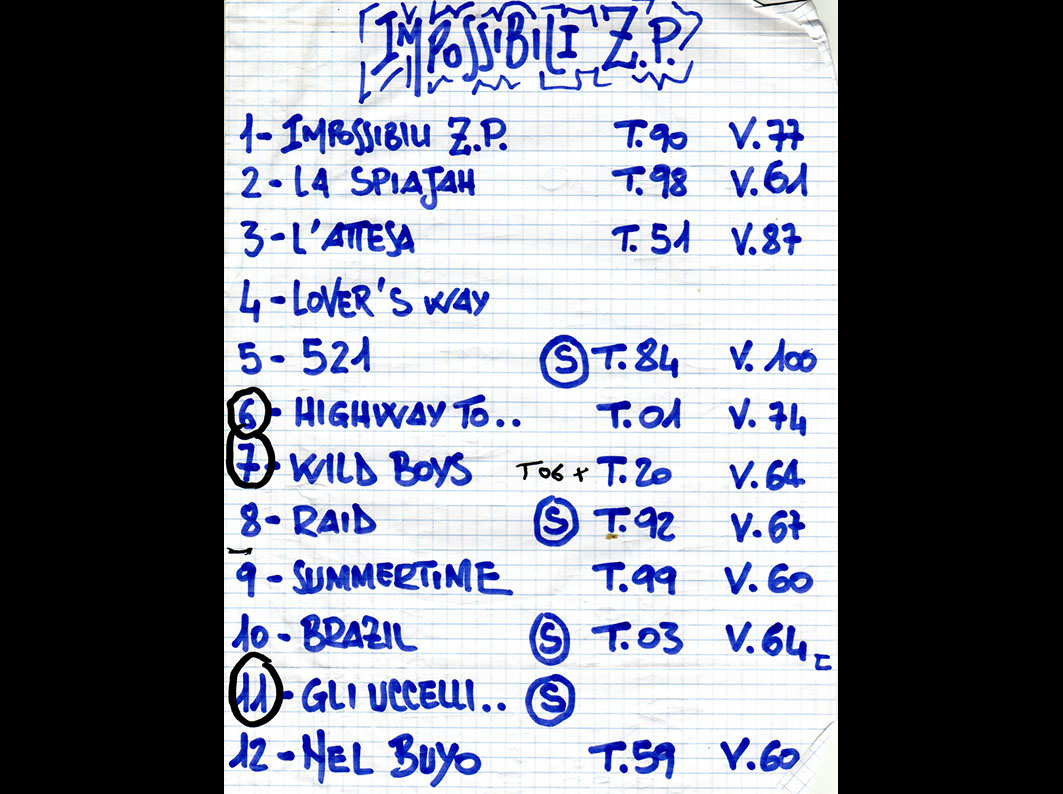 IMPOSSIBILI Z.P.
1- IMPOSSIBILI Z.P. T.90 V.77
2- LA SPIAJAH T.98 V.61
3- L'ATTESA T.51 V.87
4- LOVER'S WAY
5- 521 S T.84 V.100
6- HIGHWAY TO.. T.01 V.74
7- WILD BOYS T06+ T.20 V.64
8- RAID S T.92 V.67
9- SUMMERTIME T.99 V.60
10- BRAZIL S T.03 V.64
11- GLI UCCELLI.. S
12- NEL BUYO T.59 V.60